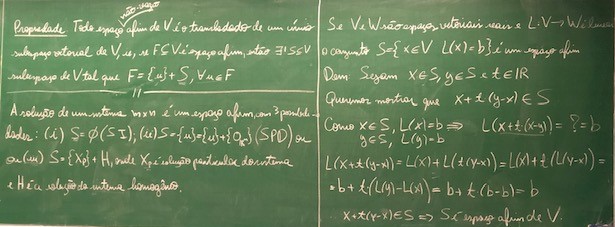 não-vazio
Propriedade Todo espaço afim de V é o transladado de um único
subespaço vetorial de V, ie, se F⊆V é espaço afim, então ∃! S⊆V
subespaço de V tal que F = {u} + S, ∀u∈F
A solução de um sistema m×n é um espaço afim, com 3 possibili-
dades: (i) S = ∅ (SI); (ii) S = {u} = {u} + {0} (SPD) ou
ou (iii) S = {Xp} + H, onde Xp é solução particular do sistema
e H é a solução do sistema homogêneo.
Se V e W são espaços vetoriais reais e L: V→W é linear
o conjunto S = {x∈V L(x) = b} é um espaço afim
Dem: Sejam x∈S, y∈S e t∈ℝ
Queremos mostrar que x + t(y-x) ∈ S
Como x∈S, L(x) = b ⇒ L(x + t(x-y)) = ? = b
y∈S, L(y) = b
L(x + t(y-x)) = L(x) + L(t(y-x)) = L(x) + t(L(y-x)) =
= b + t·(L(y) - L(x)) = b + t·(b-b) = b
x + t(y-x) ∈ S ⇒ S é espaço afim de V.